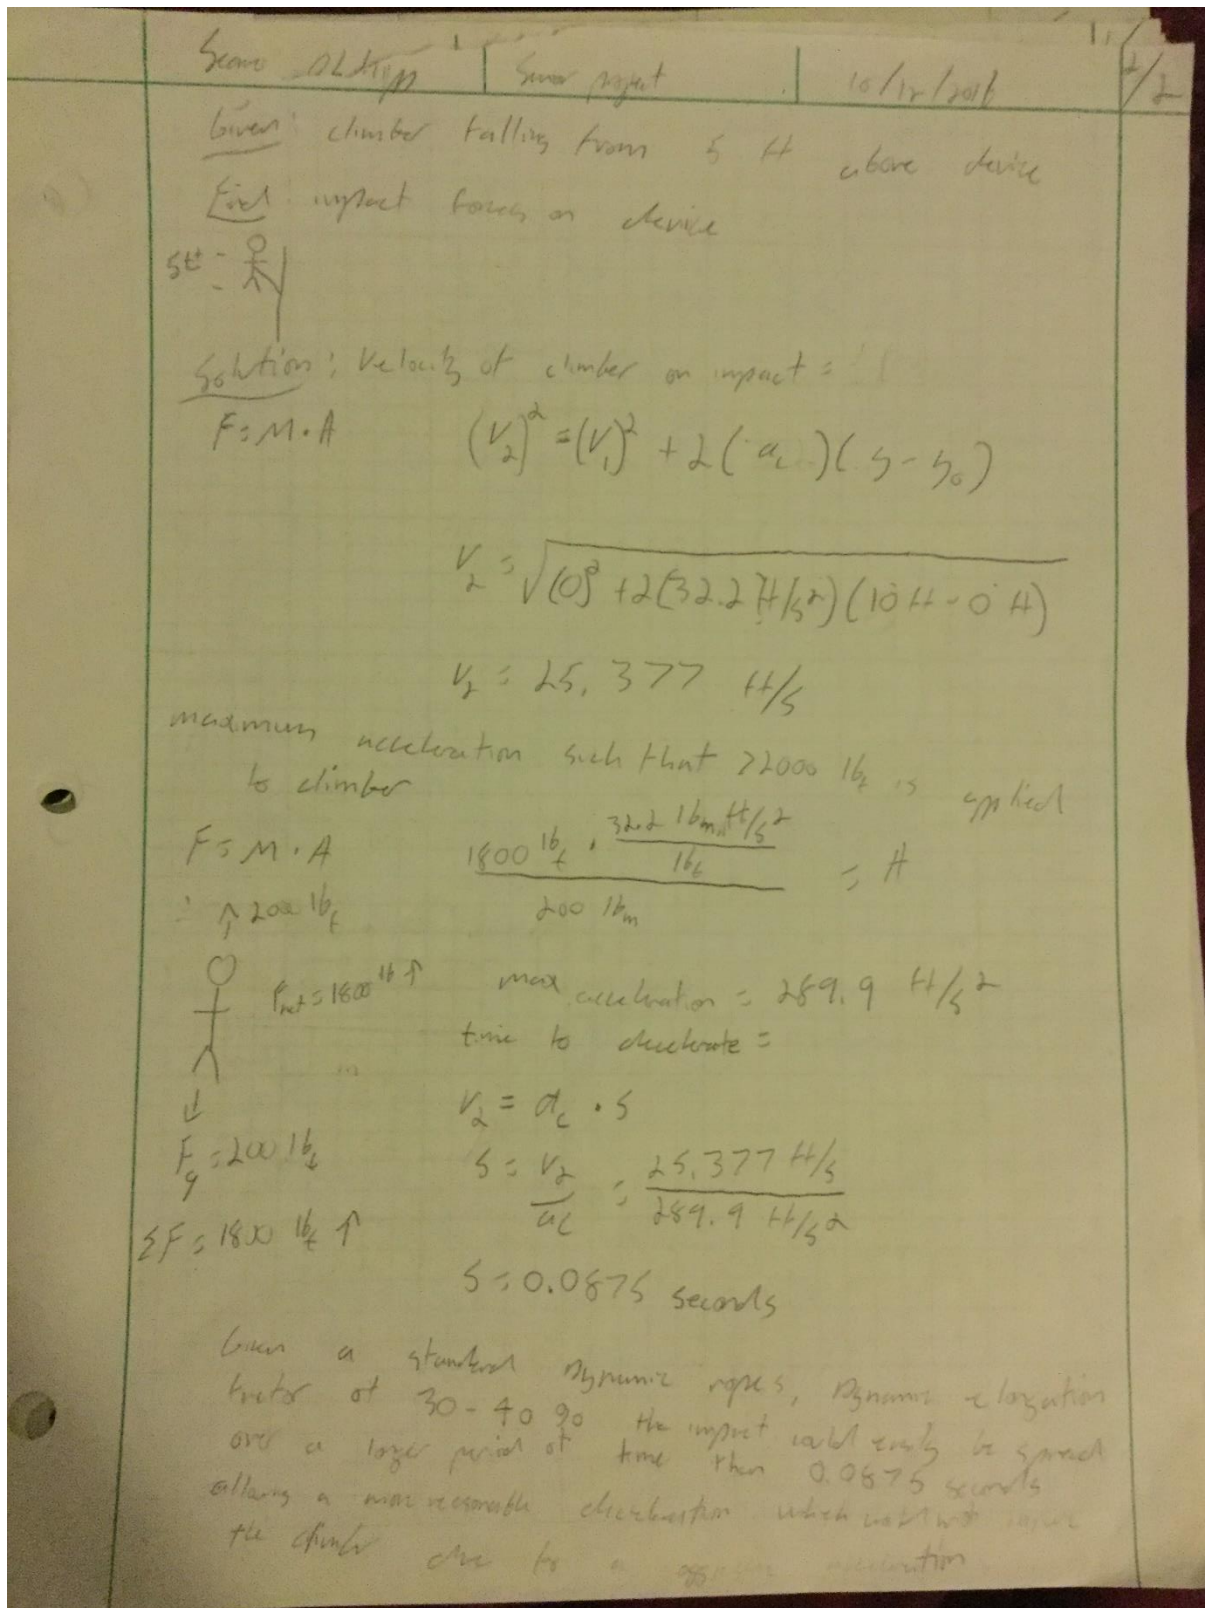 Senior project 10/12/2016 2/2
Given: climber falling from 5 ft above device
Find: impact forces on device
5ft
Solution: Velocity of climber on impact =
F = M · A (V₂)² = (V₁)² + 2(a꜀)(s - s₀)
V₂ = √(0)² + 2(32.2 ft/s²)(10 ft - 0 ft)
V₂ = 25.377 ft/s
maximum acceleration such that >2000 lbf is applied
to climber
F = M · A 1800 lbf · 32.2 lbm ft/s² / lbf / 200 lbm = A
↑ 2000 lbf
Fnet = 1800 lb ↑ max acceleration = 289.9 ft/s²
time to decelerate =
V₂ = a꜀ · s
Fg = 200 lbf s = V₂ / a꜀ = 25.377 ft/s / 289.9 ft/s²
ΣF = 1800 lbf ↑
s = 0.0875 seconds
Given a standard Dynamic ropes, Dynamic elongation
factor of 30-40% the impact could easily be spread
over a longer period of time than 0.0875 seconds
allowing a more reasonable deceleration which would not
the climber due to a acceleration